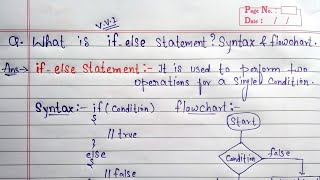 Page No. :
Date : / /
V.V.I
Q. What is if-else Statement? Syntax & flowchart.
Ans→ if-else Statement:- It is used to perform two
operations for a single Condition.
Syntax:- if (Condition)
{
// true
}
else
{
// false
flowchart:-
Start
Condition
false